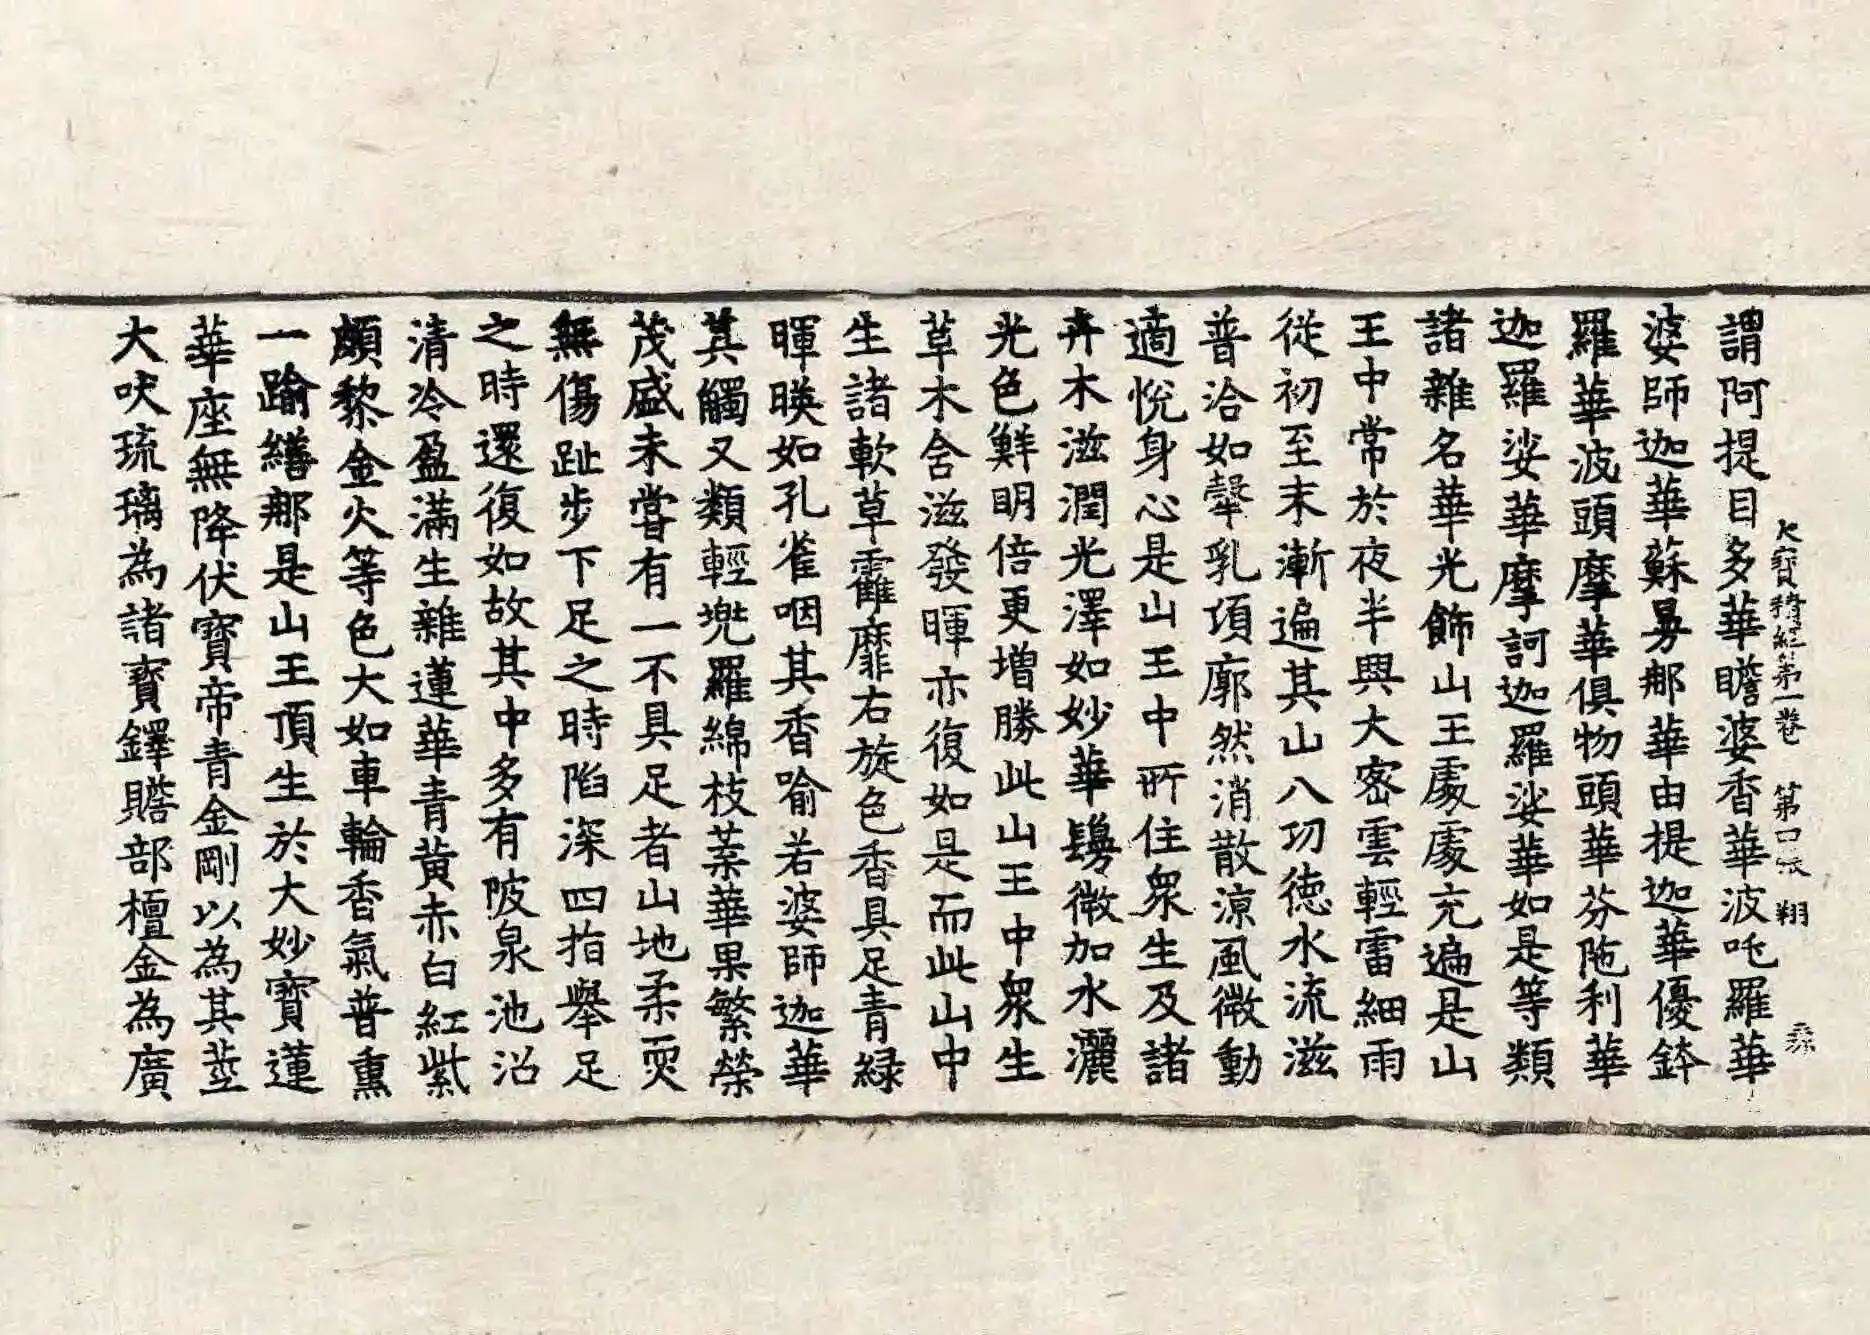 大寶積經第一卷 第口張 翔
謂阿提目多華瞻婆香華波吒羅華
婆師迦華蘇曼那華由提迦華優鉢
羅華波頭摩華俱物頭華芬陁利華
迦羅娑華摩訶迦羅娑華如是等類
諸雜名華光飾山王處處充遍是山
王中常於夜半興大密雲輕雷細雨
從初至末漸遍其山八功德水流滋
普洽如𤛓乳頃廓然消散涼風微動
適悅身心是山王中所住衆生及諸
卉木滋潤光澤如妙華鬘微加水灑
光色鮮明倍更增勝此山王中衆生
草木含滋發暉亦復如是而此山中
生諸軟草靃靡右旋色香具足青緑
暉暎如孔雀咽其香喻若婆師迦華
其觸又類輕兠羅綿枝葉華果繁榮
茂盛未嘗有一不具足者山地柔耎
無傷趾步下足之時陷深四指舉足
之時還復如故其中多有陂泉池沼
清冷盈滿生雜蓮華青黃赤白紅紫
頗黎金火等色大如車輪香氣普熏
一踰繕那是山王頂生於大妙寶蓮
華座無降伏寶帝青金剛以為其莖
大吠琉璃為諸寶鐸贍部檀金為廣